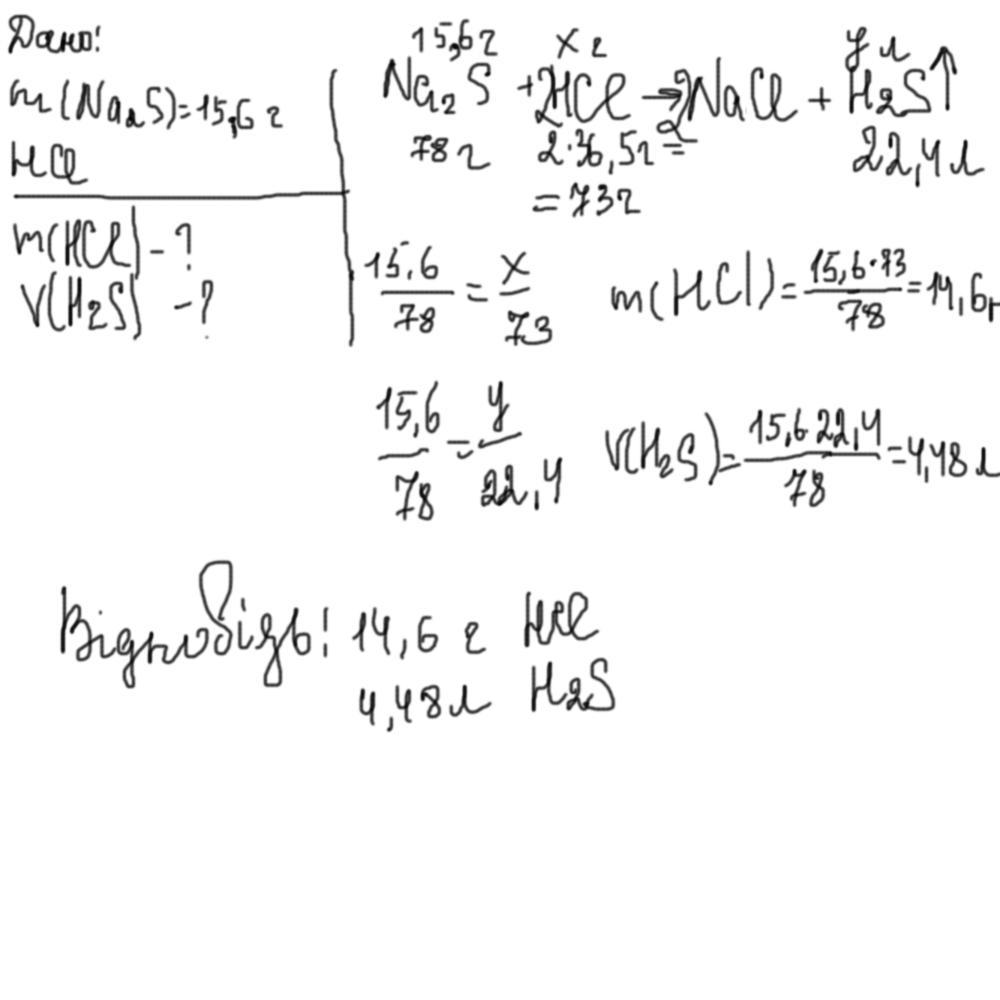 Дано:
m(Na₂S)=15,6 г
HCl
m(HCl) - ?
V(H₂S) - ?
15,6 г x г y л
Na₂S + 2HCl → 2NaCl + H₂S↑
78 г 2·36,5г = 22,4 л
= 73г
15,6/78 = x/73 m(HCl) = 15,6·73/78 = 14,6г
15,6/78 = y/22,4 V(H₂S) = 15,6·22,4/78 = 4,48 л
Відповідь: 14,6 г HCl
4,48 л H₂S